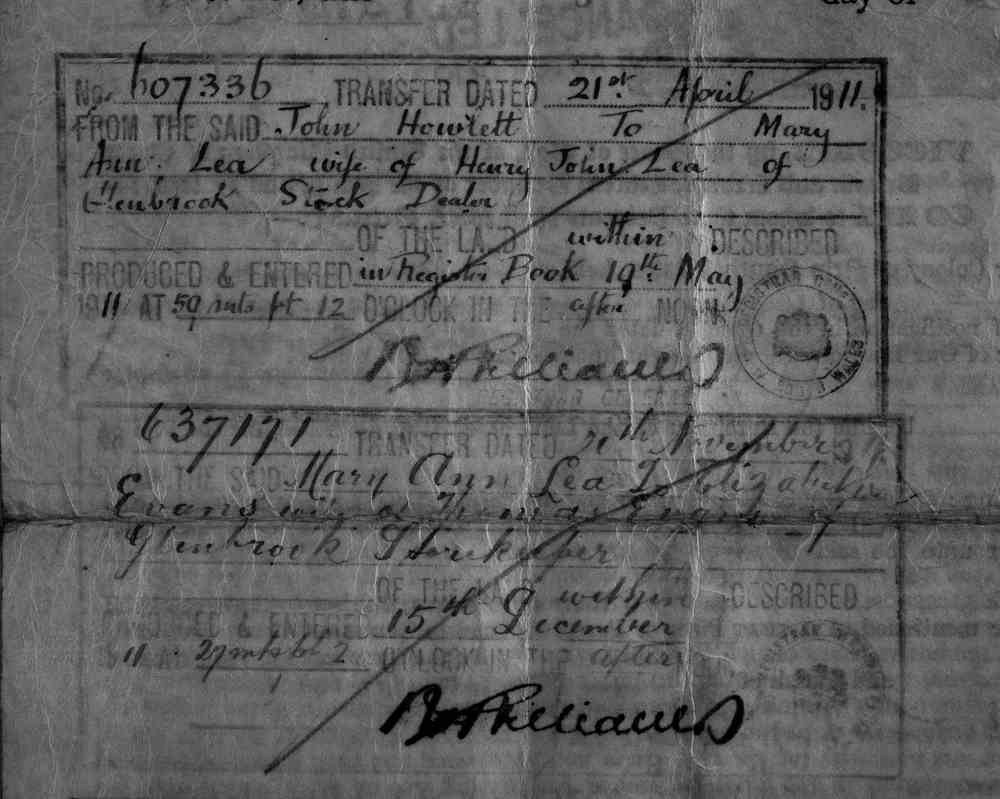 day of
No. 607336 TRANSFER DATED 21st April 1911.
FROM THE SAID John Howlett To Mary
Ann Lea wife of Henry John Lea of
Glenbrook Stock Dealer
OF THE LAND within DESCRIBED
PRODUCED & ENTERED in Register Book 19th May
1911 AT 59 mts pt 12 O'CLOCK IN THE after NOON
637171 TRANSFER DATED November
THE SAID Mary Ann Lea To Elizabeth
Evans wife of Thomas Evans of
Glenbrook Storekeeper
OF THE LAND within DESCRIBED
PRODUCED & ENTERED 15th December
11 AT 27 mts to 2 O'CLOCK IN THE after